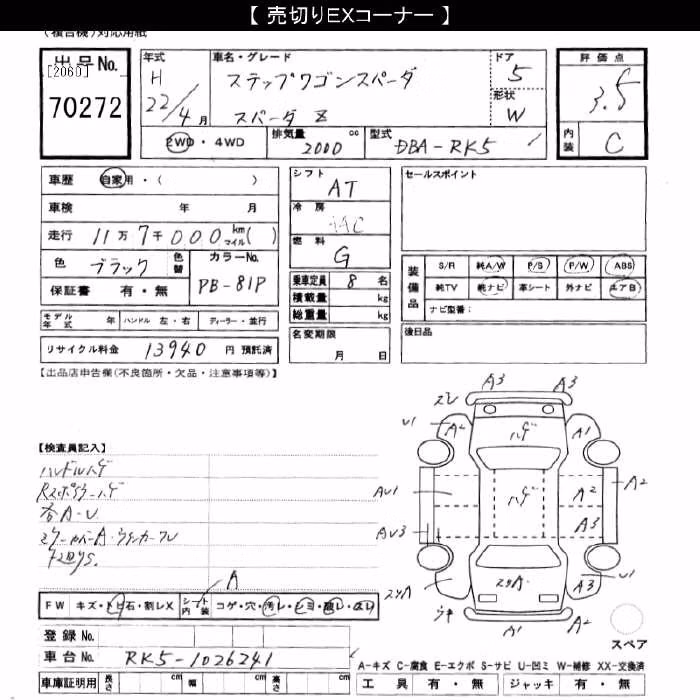 【 売切りEXコーナー 】
(複合機)対応用紙
出品No.
[2060]
70272
年式 H 22/4月
車名・グレード
ステップワゴンスパーダ
スパーダ Z
ドア 5
形状 W
評価点 3.5
内装 C
2WD・4WD
排気量 2000 cc
型式 DBA-RK5
車歴 自家用・( )
車検 年 月
走行 11万7千000 km マイル( )
色 ブラック 色替 カラーNo. PB-81P
保証書 有・無
モデル年式 年 ハンドル 左・右 ディーラー・並行
リサイクル料金 13940 円 預託済
シフト AT
冷房 AAC
燃料 G
乗車定員 8 名
積載量 kg
総重量 kg
名変期限 月 日
セールスポイント
装備品 S/R 純A/W P/S P/W ABS
純TV 純ナビ 革シート 外ナビ エアB
ナビ型番:
後日品
【出品店申告欄(不良箇所・欠品・注意事項等)】
【検査員記入】
ハンドルハゲ
Rスポイラーハゲ
各A-U
FW キズ・トビ石・割レX シート内装 コゲ・穴・汚レ・シミ・破レ・スリ
A
登録No.
車台No. RK5-1026241
車庫証明用 長さ cm 幅 cm 高さ cm
A3 A3
U1 A2 ハゲ A1
AU1 ハゲ A2 A2
AU3 A3
スリA スリA A3 U1
A1 A2
スペア
A-キズ C-腐食 E-エクボ S-サビ U-凹ミ W-補修 XX-交換済
工具 有・無 ジャッキ 有・無